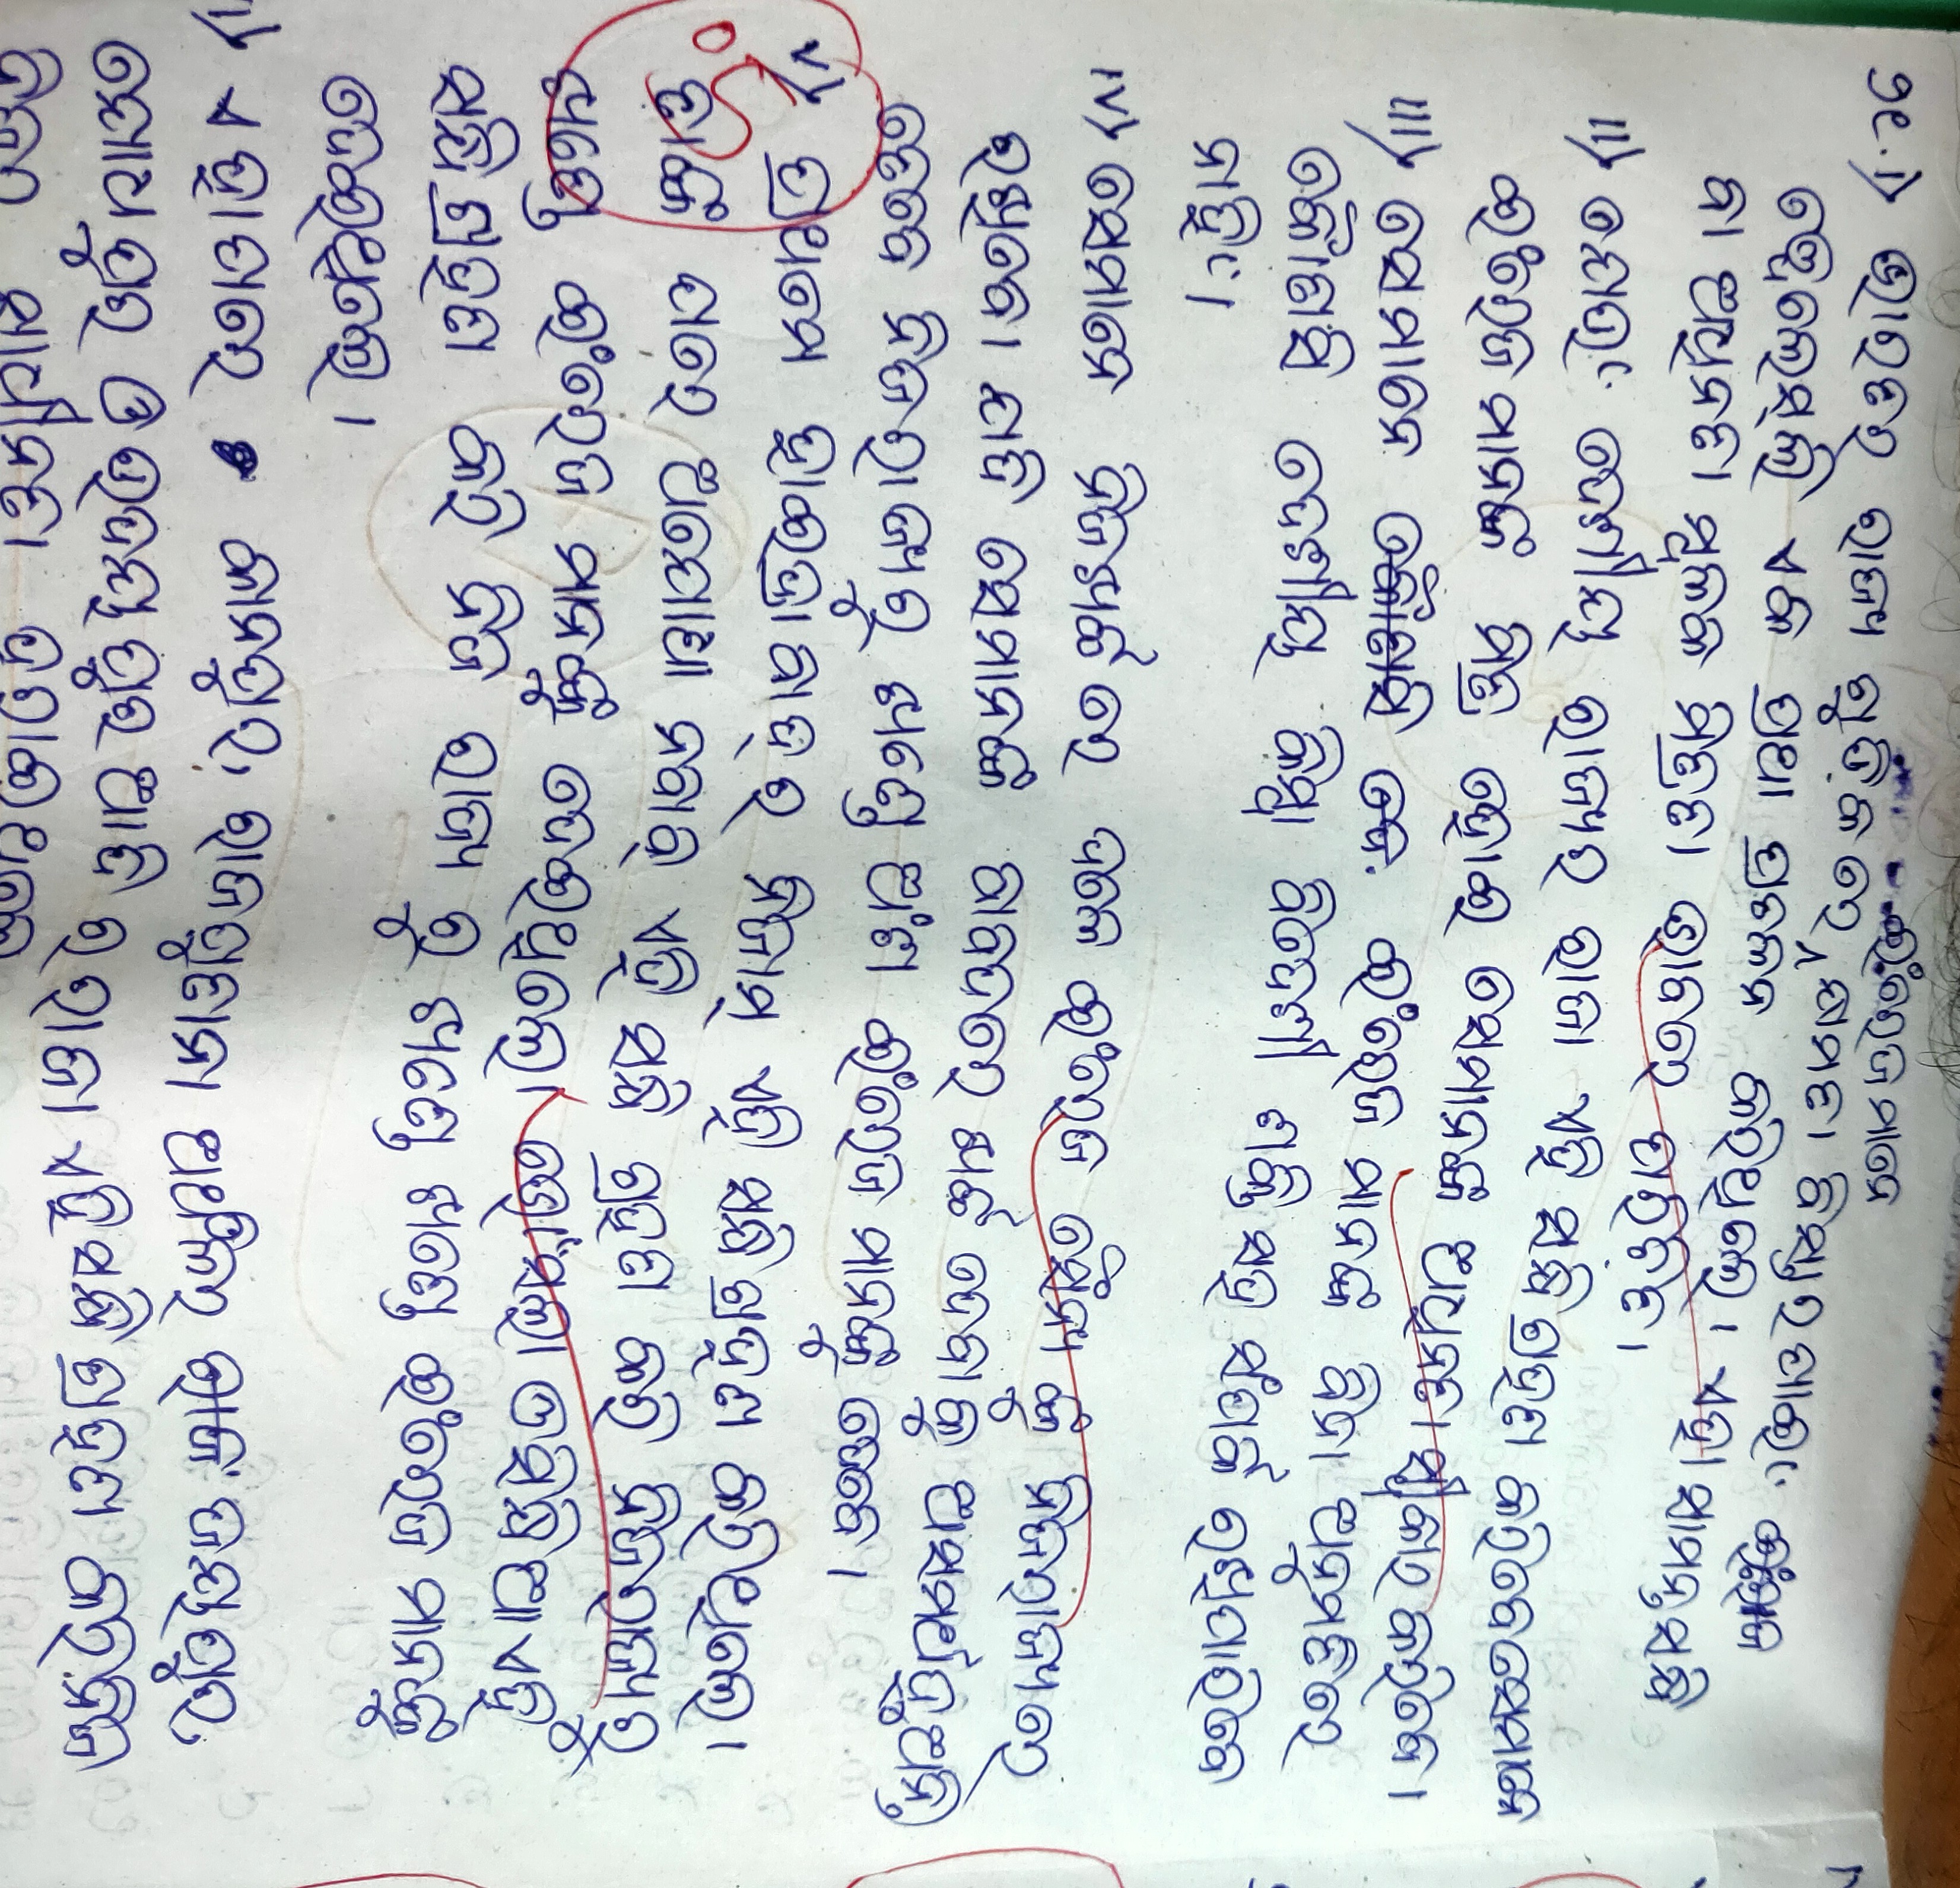 ୨୯.i) ଭାରତର ରାଜ୍ୟ ଗୁଡ଼ିକ ରେ ଇଂରେଜ ମାନେ କ୍ଷମତା ବିସ୍ତାର ପାଇଁ
ୱେଲେସ୍‌ଲି ଏକ ପ୍ରଥା ପ୍ରଚଳନ କରିଥିଲେ। ଏହା ସାମନ୍ତ ସନ୍ଧି
ବା ଅଧିନତା ମୂଳକ ମିତ୍ରତା ଭାବରେ ପରିଚିତ।
ii) ଯେଉଁ ଦେଶୀୟ ରାଜ୍ୟର ରାଜା ଏହି ସନ୍ଧି ଗ୍ରହଣ କରିବେ ସେମାନେ
ଇଂରେଜ ମାନଙ୍କ ମିତ୍ର ହୋଇ ସେମାନଙ୍କ ଅଧିନତା ସ୍ୱୀକାର କରିବେ।
iii) ସେମାନେ କୌଣସି ଦେ. ଇଂରେଜ ମାନଙ୍କ ବିନା ଅନୁମତିରେ
କୌଣସି ଦେଶୀୟ କିମ୍ବା ବିଦେଶୀ ଶକ୍ତି ସହ ସଂପର୍କ ରଖିପାରିବେ
ନାହିଁ।
iv) ସେମାନେ ନିଜଖର୍ଚ୍ଚ ରେ ଦଳେ ଇଂରେଜ ସୈନ୍ୟ ଙ୍କୁ ନିଜରାଜ୍ୟରେ
ରଖିବେ। ଯଦି ସେମାନଙ୍କ ବାବଦରେ ଖର୍ଚ୍ଚ ଦେବାକୁ ଅସମର୍ଥ ହୁଅନ୍ତି
ତେବେ ନିଜରାଜ୍ୟରୁ ଖଣ୍ଡେ ଅଂଶ ଇଂରେଜ ମାନଙ୍କୁ ଦେବେ।
v) ପ୍ରଥମେ ହାଇଦ୍ରାବାଦ୍ ର ନିଜାମ୍ ଏହି ସନ୍ଧି ଗ୍ରହଣ କରିଥିଲେ।
05
ତାଙ୍କ ପରେ ଅଯୋଧା ନବାବ୍ ଏହି ସନ୍ଧି ଗ୍ରହଣ କରି ନିଜରାଜ୍ୟରୁ
ଖଣ୍ଡେ ଇଂରେଜ ମାନଙ୍କୁ ଦେଇଥିଲେ। ଭୋଁସଲା ଓ ସିନ୍ଧିଆ ଏହି
ସନ୍ଧି ଗ୍ରହଣ କରି ନିଜ ରାଜ୍ୟ ରୁ ଖଣ୍ଡେ ଖଣ୍ଡେ ଇଂରେଜ ମାନଙ୍କୁ
ଦେଇଥିଲେ।
ଏହା ପରେ କାନପୁର, ରାଜପୁତାନା ରାଜ ଜୟପୁର,
ଯୋଧପୁର ଓ ଉଦୟପୁର ଆଦି ର ରାଜା ଏହି ସନ୍ଧି ଗ୍ରହଣ କରି ନିଜ